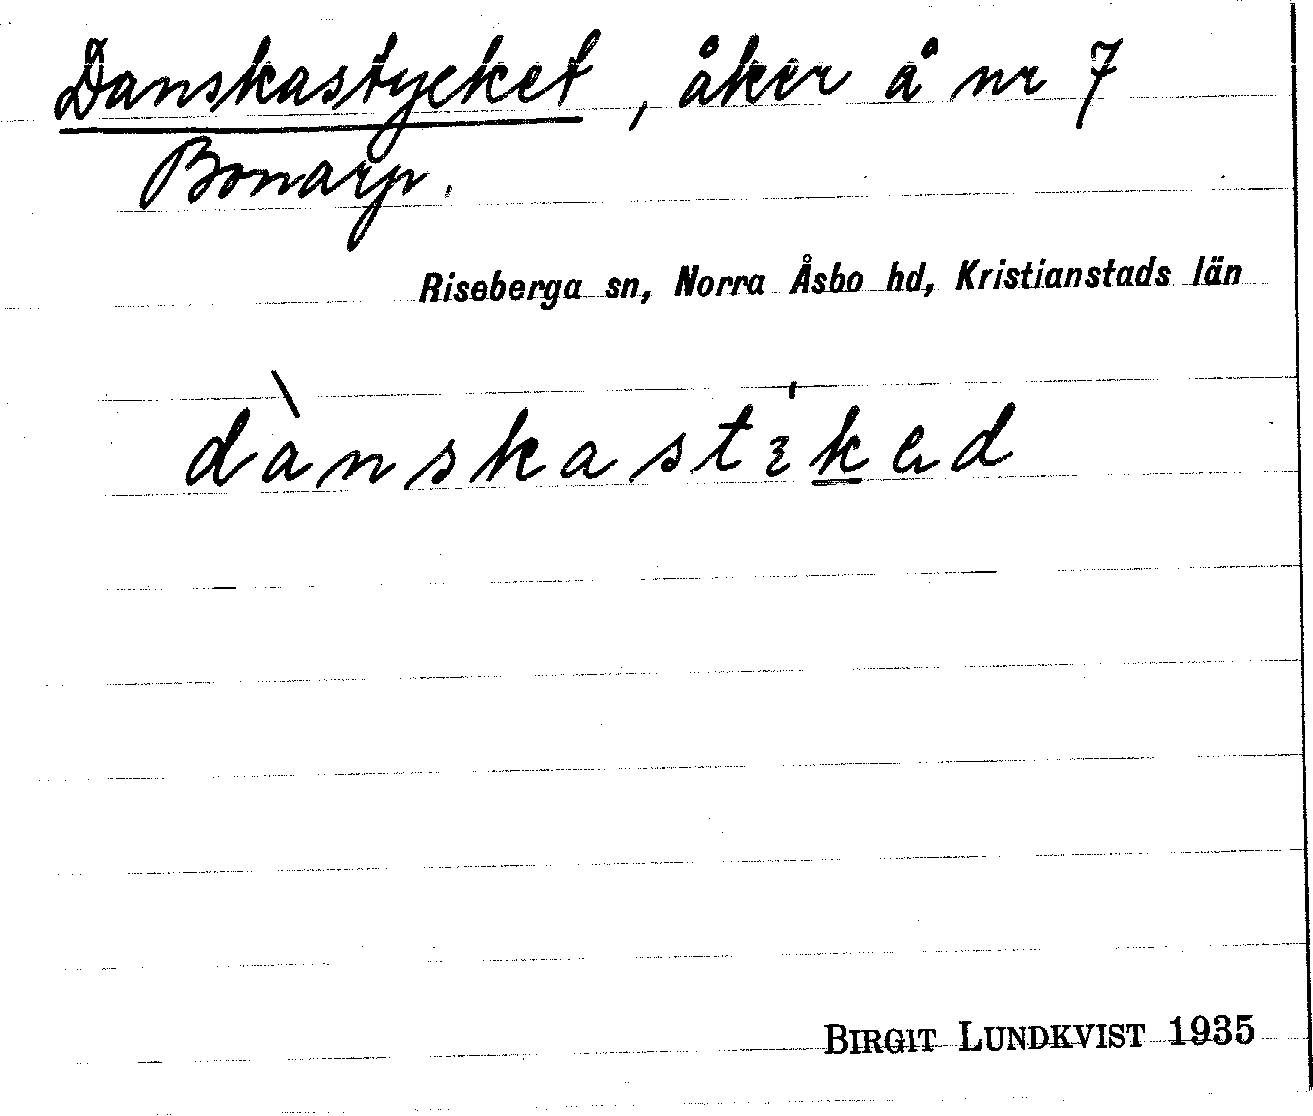 Danskastycket, åker å nr 7
Bonarp.
Riseberga sn, Norra Åsbo hd, Kristianstads län
dànskastik̲ed
BIRGIT LUNDKVIST 1935